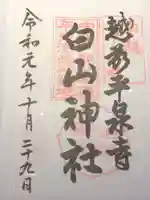 越前平泉寺
白山神社
令和元年十月二十九日